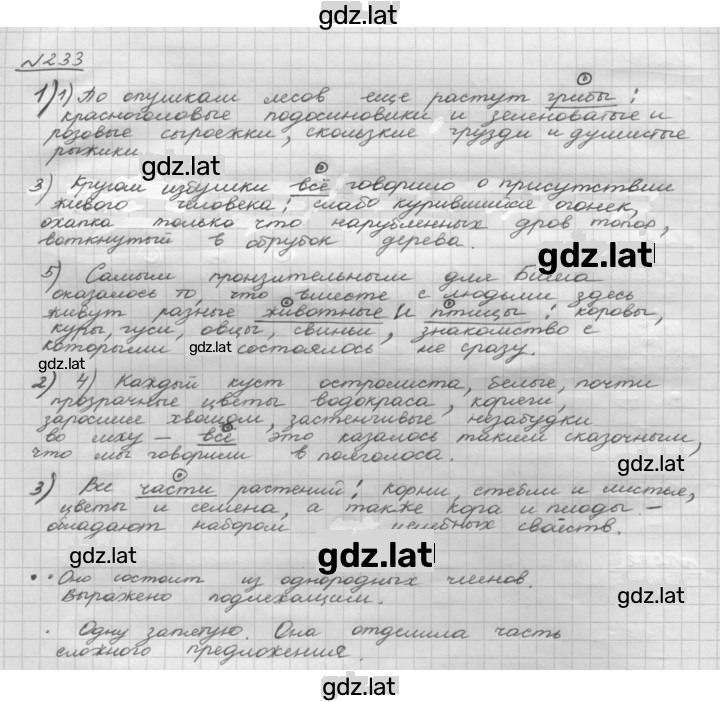 gdz.lat
№233
1) 1) По опушкам лесов еще растут грибы:
красноголовые подосиновики и зеленоватые и
розовые сыроежки, скользкие грузди и душистые
рыжики.
gdz.lat
3) Кругом избушки всё говорило о присутствии
живого человека: слабо курившийся огонек,
охапка только что нарубленных дров топор,
воткнутый в обрубок дерева.
gdz.lat
5) Самым пронзительным для Бима
оказалось то, что вместе с людьми здесь
живут разные животные и птицы: коровы,
куры, гуси, овцы, свиньи, знакомство с
которыми состоялось не сразу.
gdz.lat
gdz.lat
2) 4) Каждый куст остролиста, белые, почти
прозрачные цветы водокраса, коряги,
заросшие хвощом, застенчивые незабудки
во мху – всё это казалось таким сказочным,
что мы говорили в полголоса.
gdz.lat
3) Все части растений: корни, стебли и листья,
цветы и семена, а также кора и плоды –
обладают набором целебных свойств.
gdz.lat
gdz.lat
• • Оно состоит из однородных членов.
Выражено подлежащим.
gdz.lat
• Одну запятую. Она отделила часть
сложного предложения.
gdz.lat